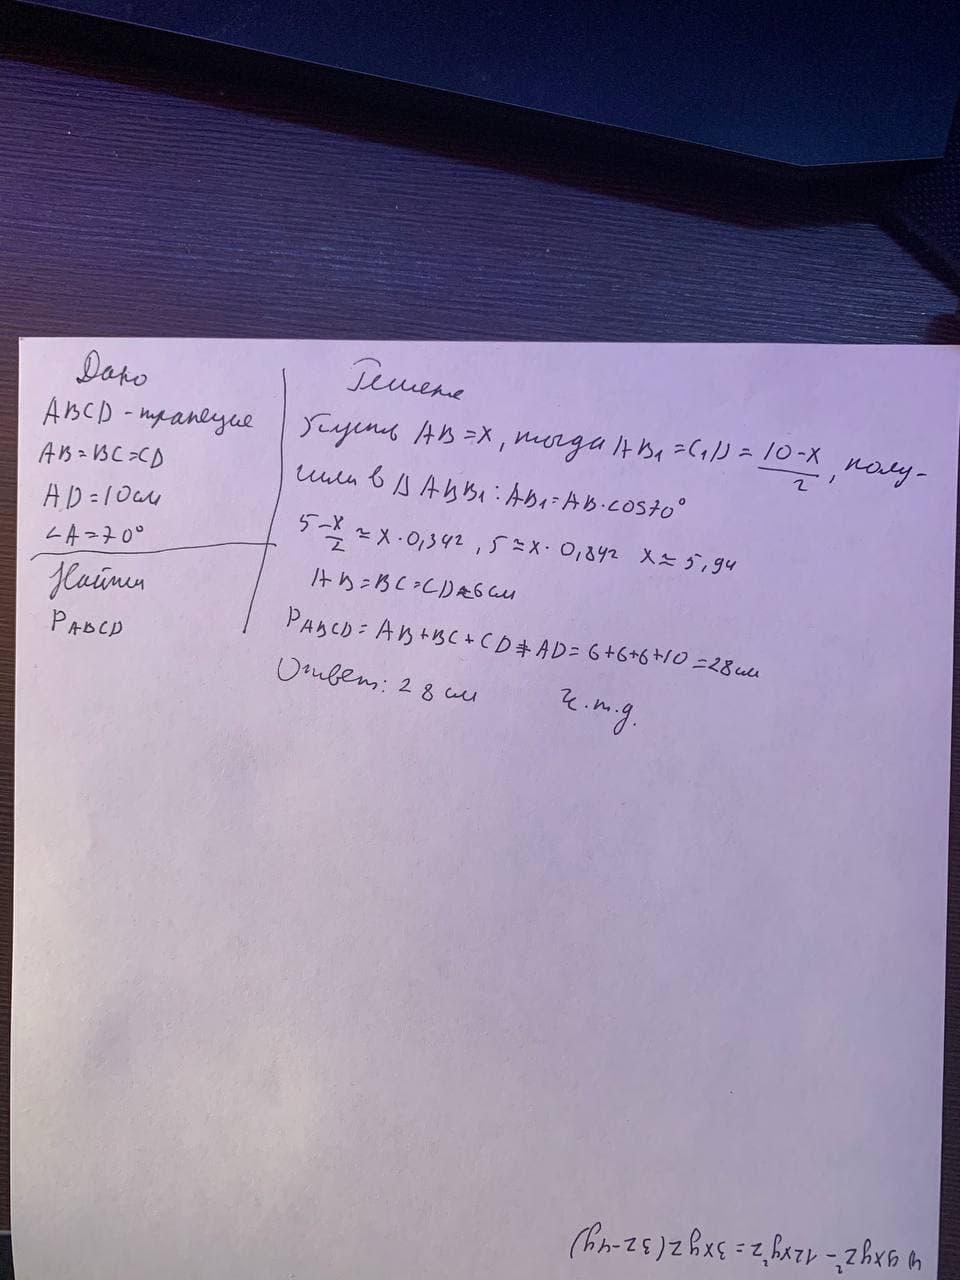 Дано
ABCD - трапеция
AB = BC = CD
AD = 10 см
∠A = 70°
Найти
P_ABCD
Решение
Пусть AB = x, тогда AB₁ = C₁D = (10-x)/2, полу-
чили в Δ ABB₁: AB₁ = AB · cos70°
5 - x/2 ≈ x · 0,342, 5 ≈ x · 0,842 x ≈ 5,94
AB = BC = CD ≈ 6 см
P_ABCD = AB + BC + CD + AD = 6+6+6+10 = 28 см
Ответ: 28 см ч.т.д.
4) 9xyz² - 12xy²z = 3xyz(3z-4y)